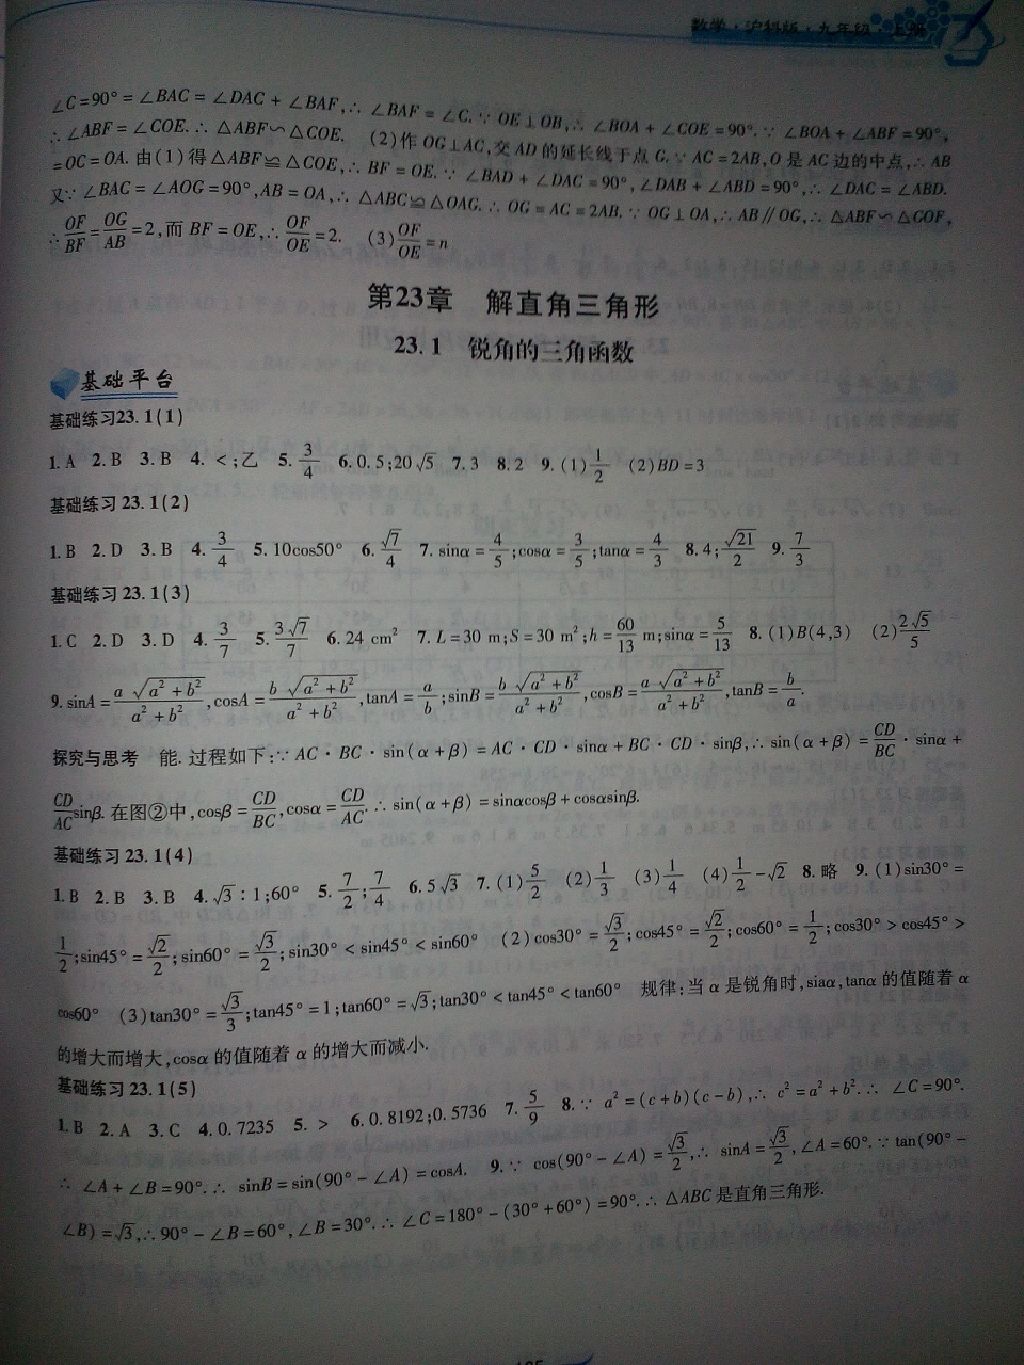 数学·沪科版·九年级·上册
∠C=90°=∠BAC=∠DAC+∠BAF,∴∠BAF=∠C.∵OE⊥OB,∴∠BOA+∠COE=90°.∵∠BOA+∠ABF=90°,
∴∠ABF=∠COE.∴△ABF∽△COE. (2)作OG⊥AC,交AD的延长线于点G.∵AC=2AB,O是AC边的中点,∴AB
=OC=OA.由(1)得△ABF≌△COE,∴BF=OE.∵∠BAD+∠DAC=90°,∠DAB+∠ABD=90°,∴∠DAC=∠ABD.
又∵∠BAC=∠AOG=90°,AB=OA,∴△ABC≌△OAG.∴OG=AC=2AB.∵OG⊥OA,∴AB∥OG,∴△ABF∽△GOF,
∴OF/BF=OG/AB=2,而BF=OE,∴OF/OE=2. (3)OF/OE=n
第23章 解直角三角形
23.1 锐角的三角函数
基础平台
基础练习23.1(1)
1.A 2.B 3.B 4.<;乙 5.3/4 6.0.5;20√5 7.3 8.2 9.(1)1/2 (2)BD=3
基础练习23.1(2)
1.B 2.D 3.B 4.3/4 5.10cos50° 6.√7/4 7.sinα=4/5;cosα=3/5;tanα=4/3 8.4;√21/2 9.7/3
基础练习23.1(3)
1.C 2.D 3.D 4.3/7 5.3√7/7 6.24 cm² 7.L=30 m;S=30 m²;h=60/13 m;sinα=5/13 8.(1)B(4,3) (2)2√5/5
9.sinA=a√(a²+b²)/(a²+b²),cosA=b√(a²+b²)/(a²+b²),tanA=a/b;sinB=b√(a²+b²)/(a²+b²),cosB=a√(a²+b²)/(a²+b²),tanB=b/a.
探究与思考 能.过程如下:∵AC·BC·sin(α+β)=AC·CD·sinα+BC·CD·sinβ,∴sin(α+β)=CD/BC·sinα+
CD/AC sinβ.在图②中,cosβ=CD/BC,cosα=CD/AC.∴sin(α+β)=sinαcosβ+cosαsinβ.
基础练习23.1(4)
1.B 2.B 3.B 4.√3:1;60° 5.7/2;7/4 6.5√3 7.(1)5/2 (2)1/3 (3)1/4 (4)1/2-√2 8.略 9.(1)sin30°=
1/2;sin45°=√2/2;sin60°=√3/2;sin30°<sin45°<sin60° (2)cos30°=√3/2;cos45°=√2/2;cos60°=1/2;cos30°>cos45°>
cos60° (3)tan30°=√3/3;tan45°=1;tan60°=√3;tan30°<tan45°<tan60° 规律:当α是锐角时,siaα,tanα的值随着α
的增大而增大,cosα的值随着α的增大而减小.
基础练习23.1(5)
1.B 2.A 3.C 4.0.7235 5.> 6.0.8192;0.5736 7.5/9 8.∵a²=(c+b)(c-b),∴c²=a²+b².∴∠C=90°.
∴∠A+∠B=90°.∴sinB=sin(90°-∠A)=cosA. 9.∵cos(90°-∠A)=√3/2,∴sinA=√3/2,∠A=60°.∵tan(90°-
∠B)=√3,∴90°-∠B=60°,∠B=30°.∴∠C=180°-(30°+60°)=90°.∴△ABC是直角三角形.